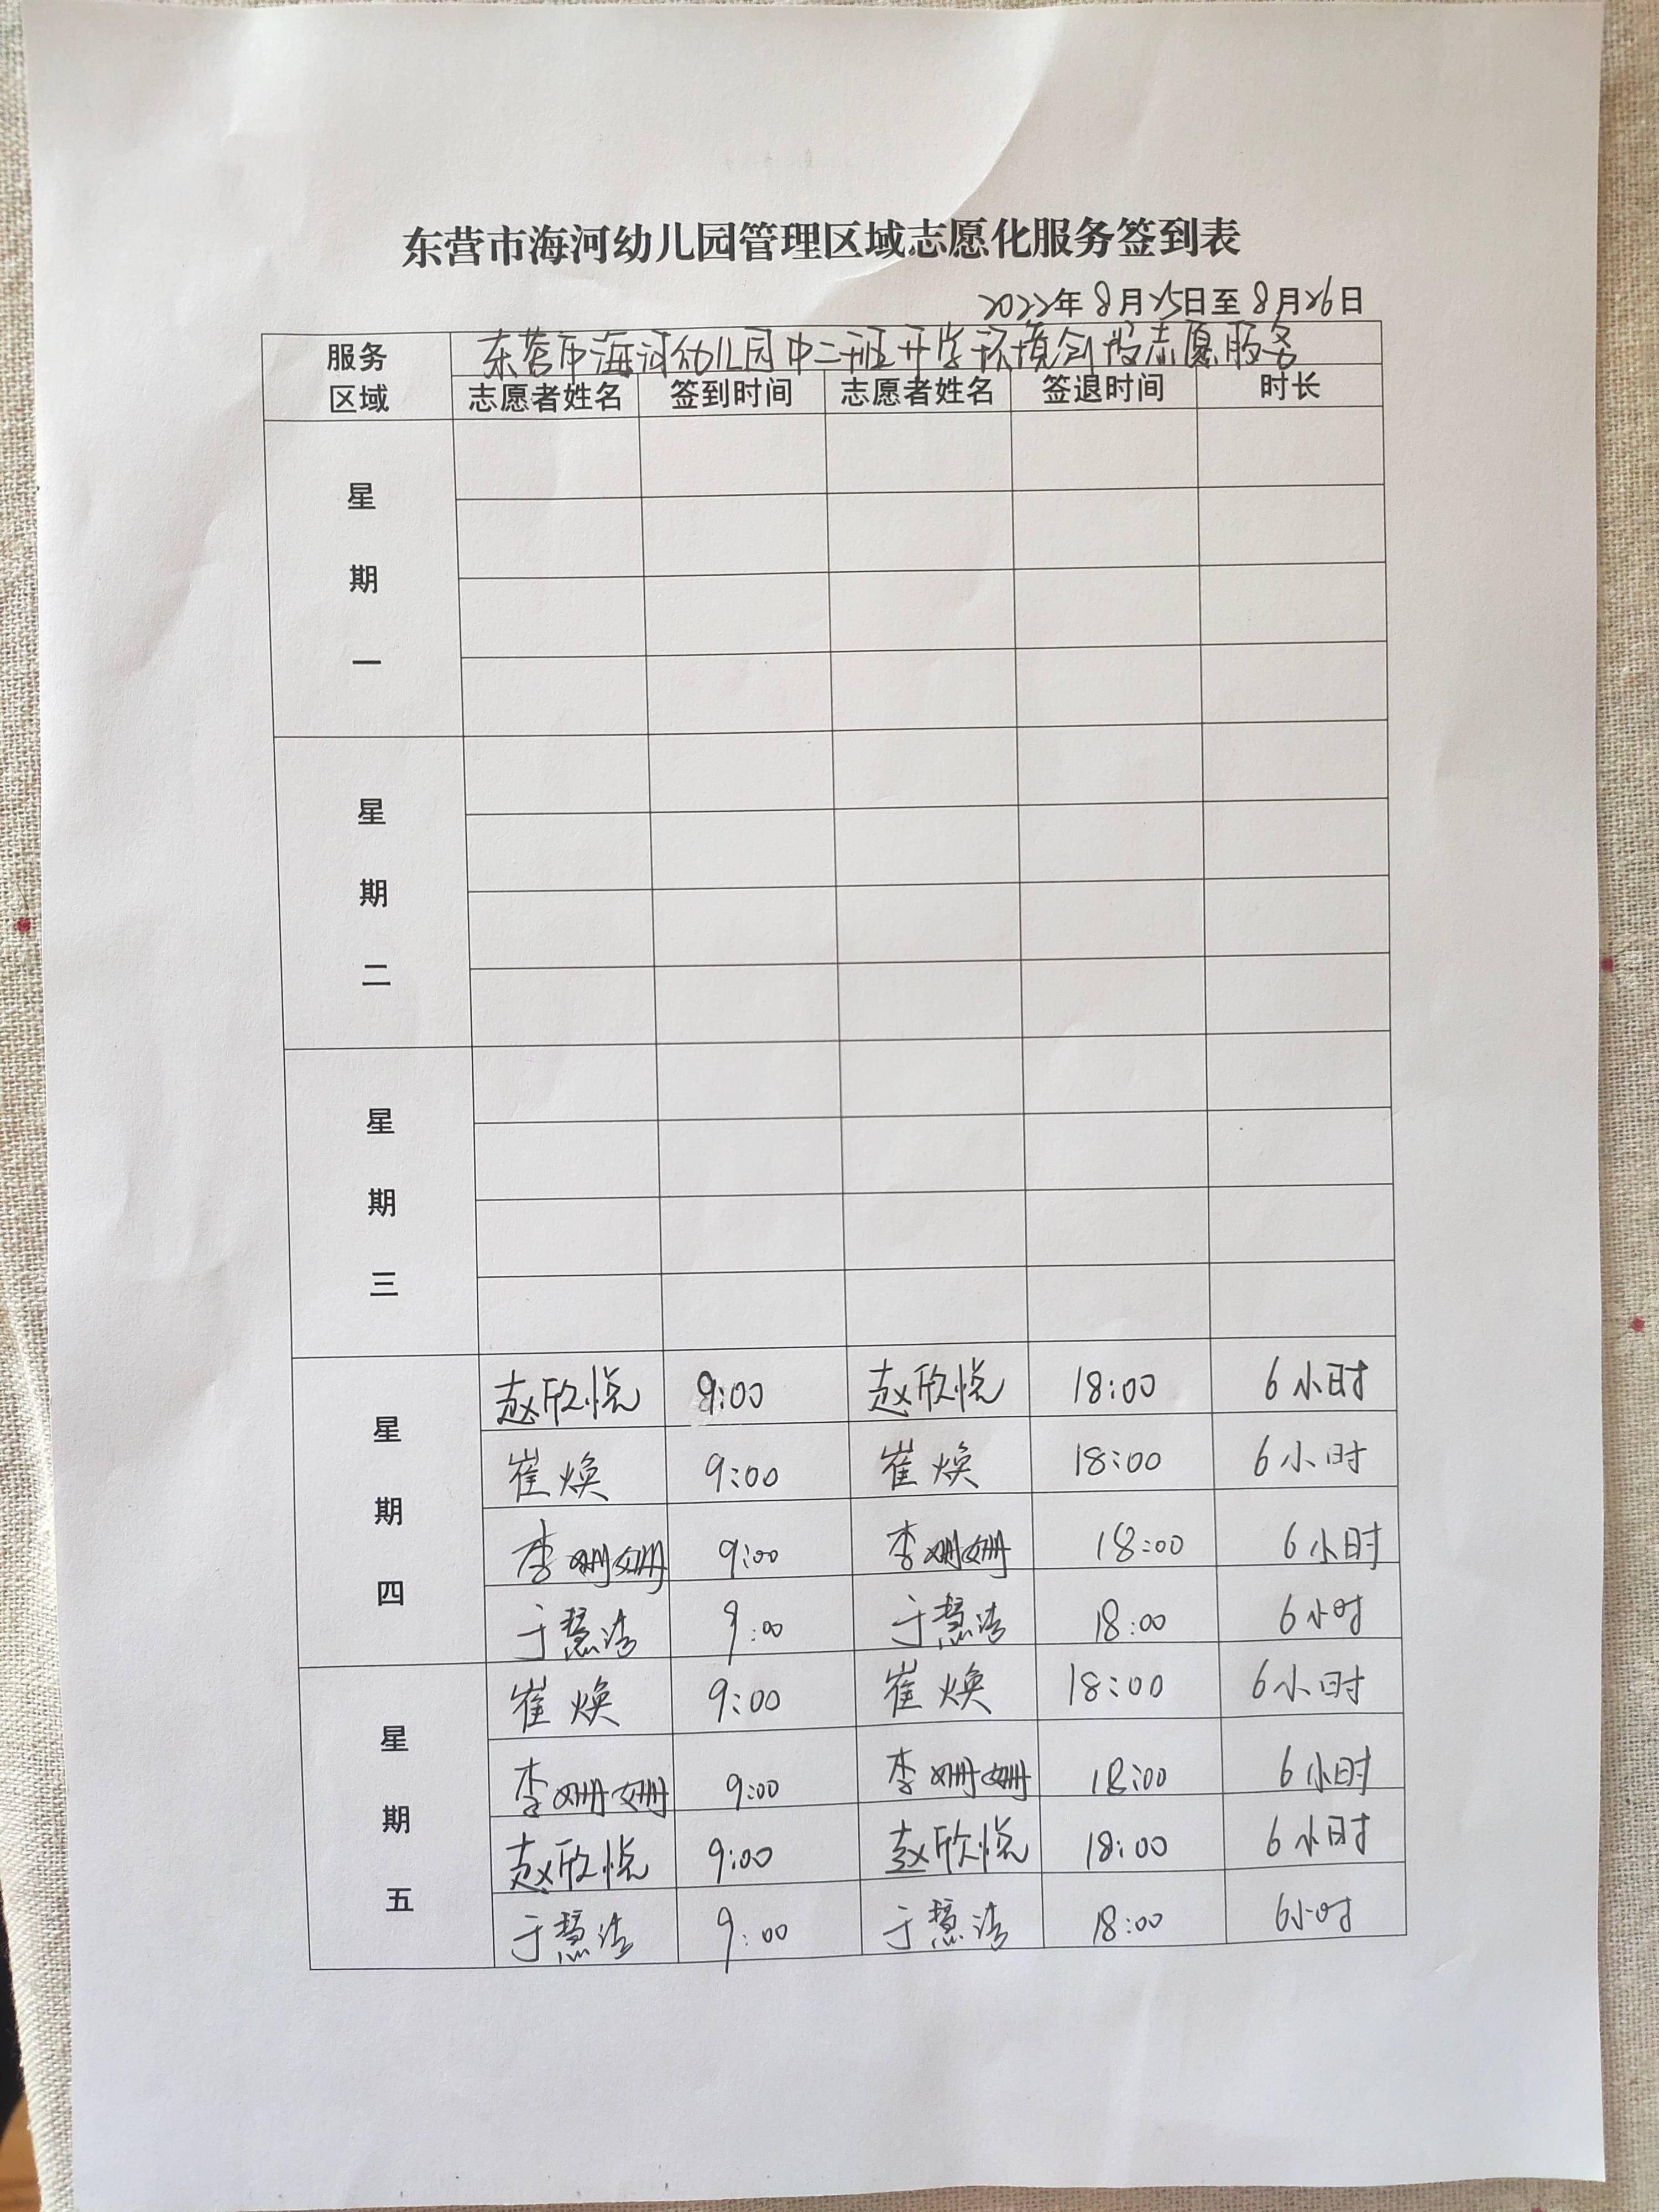 东营市海河幼儿园管理区域志愿化服务签到表
2022年8月25日至8月26日
服务区域 东营市海河幼儿园中二班开学环境创设志愿服务
志愿者姓名 签到时间 志愿者姓名 签退时间 时长
星期一
星期二
星期三
星期四
赵欣悦 9:00 赵欣悦 18:00 6小时
崔焕 9:00 崔焕 18:00 6小时
李姗姗 9:00 李姗姗 18:00 6小时
于慧洁 9:00 于慧洁 18:00 6小时
星期五
崔焕 9:00 崔焕 18:00 6小时
李姗姗 9:00 李姗姗 18:00 6小时
赵欣悦 9:00 赵欣悦 18:00 6小时
于慧洁 9:00 于慧洁 18:00 6小时